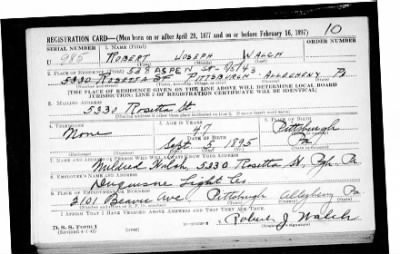 REGISTRATION CARD—(Men born on or after April 28, 1877 and on or before February 16, 1897)
10
SERIAL NUMBER 1. NAME (Print) ORDER NUMBER
U 985 ROBERT JOSEPH WALSH
(First) (Middle) (Last)
528 ASPEN ST
2. PLACE OF RESIDENCE (Print)
5330 ROSETTA ST PITTSBURGH ALLEGHENY Pa
[THE PLACE OF RESIDENCE GIVEN ON THE LINE ABOVE WILL DETERMINE LOCAL BOARD
JURISDICTION; LINE 2 OF REGISTRATION CERTIFICATE WILL BE IDENTICAL]
3. MAILING ADDRESS
5330 Rosetta St
4. TELEPHONE 5. AGE IN YEARS 6. PLACE OF BIRTH
None 47 Pittsburgh
DATE OF BIRTH
Sept. 5, 1895 Pa
7. NAME AND ADDRESS OF PERSON WHO WILL ALWAYS KNOW YOUR ADDRESS
Mildred Walsh, 5330 Rosetta St, Pgh. Pa
8. EMPLOYER'S NAME AND ADDRESS
Duquesne Light Co.
9. PLACE OF EMPLOYMENT OR BUSINESS
2101 Beaver Ave. Pittsburgh Allegheny Pa
I AFFIRM THAT I HAVE VERIFIED ABOVE ANSWERS AND THAT THEY ARE TRUE.
D. S. S. Form 1
Robert J Walsh